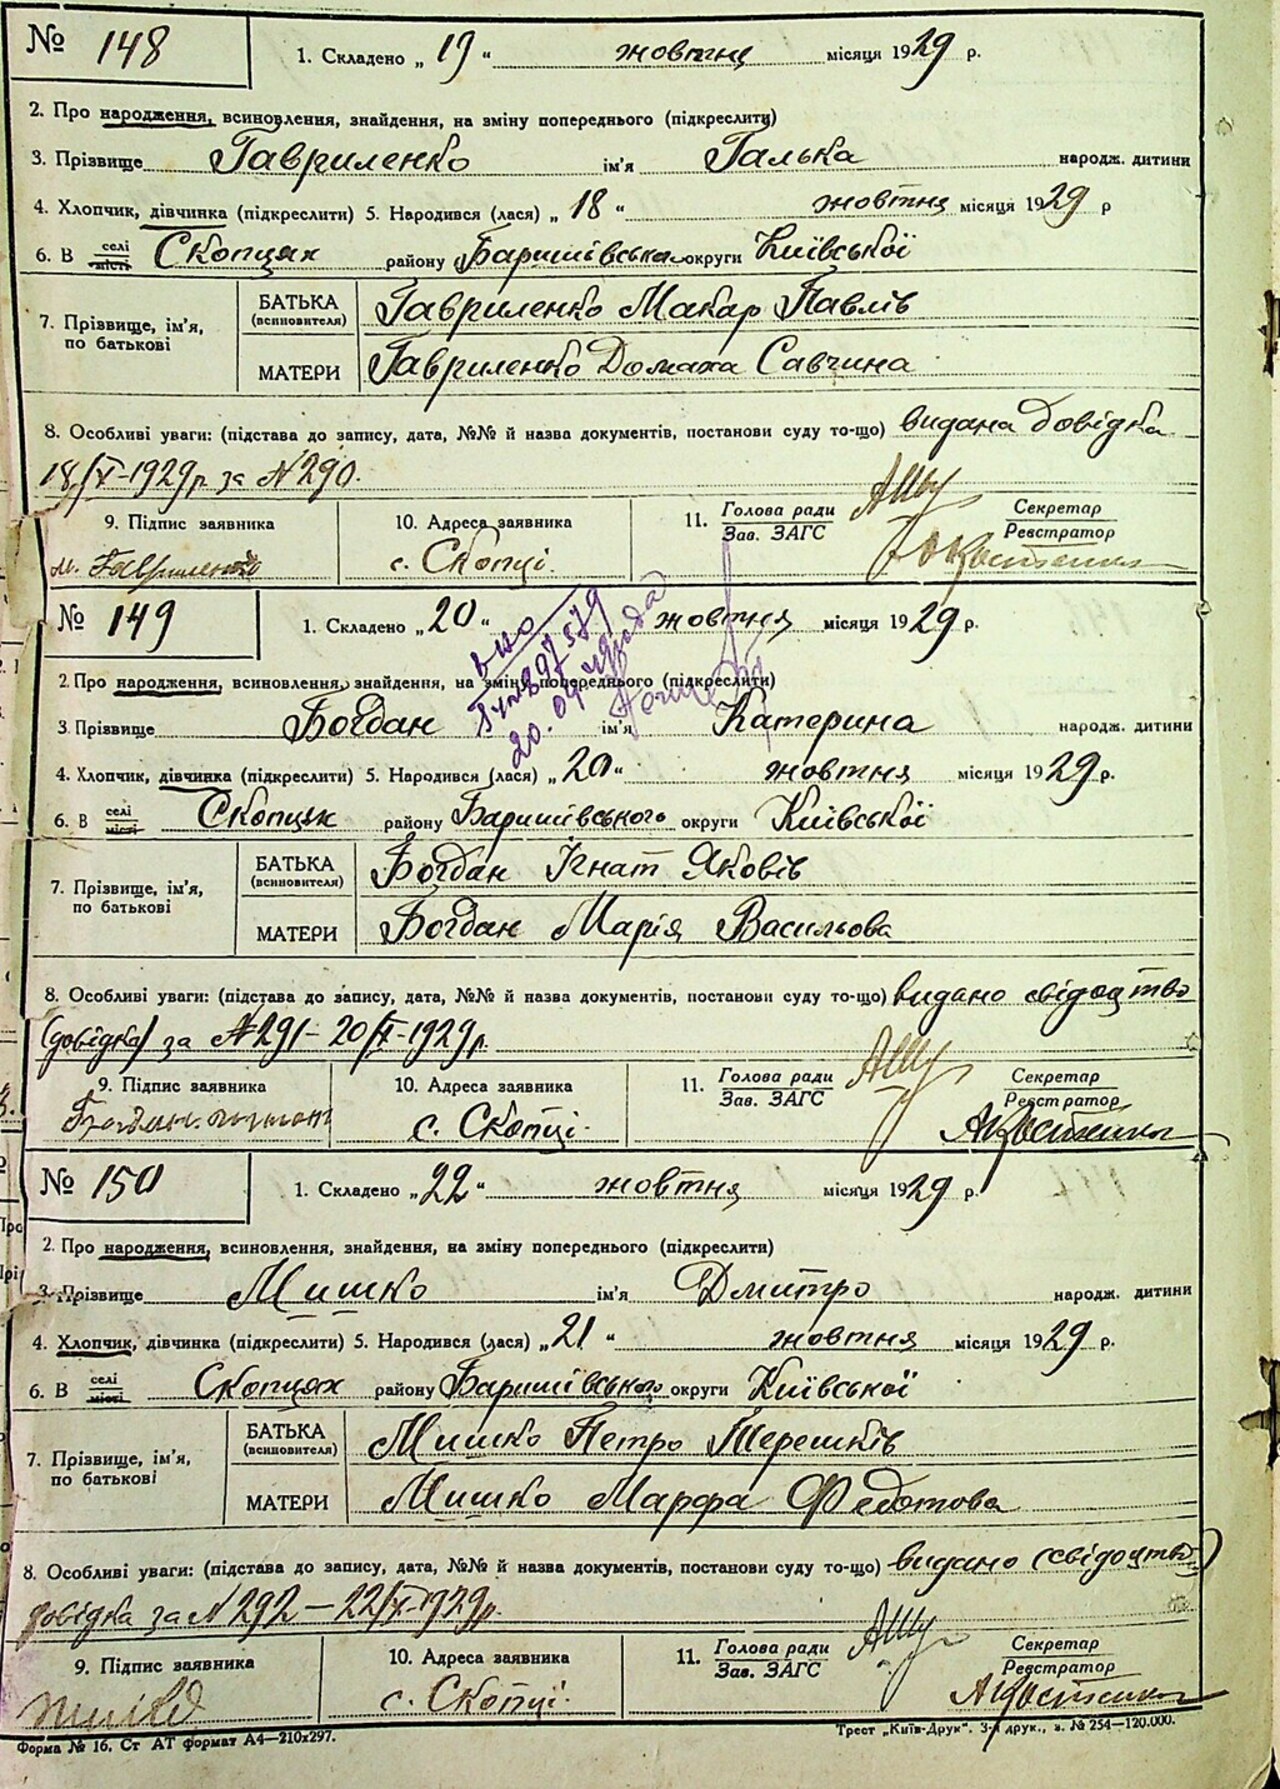 № 148
1. Складено „ 19 “ жовтня місяця 1929 р.
2. Про народження, всиновлення, знайдення, на зміну попереднього (підкреслити)
3. Прізвище Гавриленко ім'я Галька народж. дитини
4. Хлопчик, дівчинка (підкреслити) 5. Народився (лася) „ 18 “ жовтня місяця 1929 р
6. В селі місті Скопцях району Баришівська округи Київської
7. Прізвище, ім'я, по батькові
БАТЬКА (всиновителя) Гавриленко Макар Павлів
МАТЕРИ Гавриленко Домаха Савчина
8. Особливі уваги: (підстава до запису, дата, №№ й назва документів, постанови суду то-що) видана довідка
18/X-1929р за N290.
9. Підпис заявника 10. Адреса заявника 11. Голова ради Зав. ЗАГС Секретар Реєстратор
м. Гавриленко с. Скопці.
№ 149
1. Складено „ 20 “ жовтня місяця 1929 р.
2. Про народження, всиновлення, знайдення, на зміну попереднього (підкреслити)
3. Прізвище Богдан ім'я Катерина народж. дитини
4. Хлопчик, дівчинка (підкреслити) 5. Народився (лася) „ 20 “ жовтня місяця 1929 р.
6. В селі місті Скопцях району Баришівського округи Київської
7. Прізвище, ім'я, по батькові
БАТЬКА (всиновителя) Богдан Ігнат Яковів
МАТЕРИ Богдан Марія Васильова
8. Особливі уваги: (підстава до запису, дата, №№ й назва документів, постанови суду то-що) видано свідоцтво
(довідка) за N291 - 20/X-1929р.
9. Підпис заявника 10. Адреса заявника 11. Голова ради Зав. ЗАГС Секретар Реєстратор
с. Скопці. АКостенко
№ 150
1. Складено „ 22 “ жовтня місяця 1929 р.
2. Про народження, всиновлення, знайдення, на зміну попереднього (підкреслити)
3. Прізвище Мишко ім'я Дмитро народж. дитини
4. Хлопчик, дівчинка (підкреслити) 5. Народився (лася) „ 21 “ жовтня місяця 1929 р.
6. В селі місті Скопцях району Баришівського округи Київської
7. Прізвище, ім'я, по батькові
БАТЬКА (всиновителя) Мишко Петро Терешків
МАТЕРИ Мишко Марфа Федотова
8. Особливі уваги: (підстава до запису, дата, №№ й назва документів, постанови суду то-що) видано (свідоцтво)
довідка за N 292 - 22/X-1929р.
9. Підпис заявника 10. Адреса заявника 11. Голова ради Зав. ЗАГС Секретар Реєстратор
с. Скопці. АКостенко
Форма № 16. Ст АТ формат А4—210х297. Трест „Київ-Друк“. 3-я друк., з. № 254—120.000.